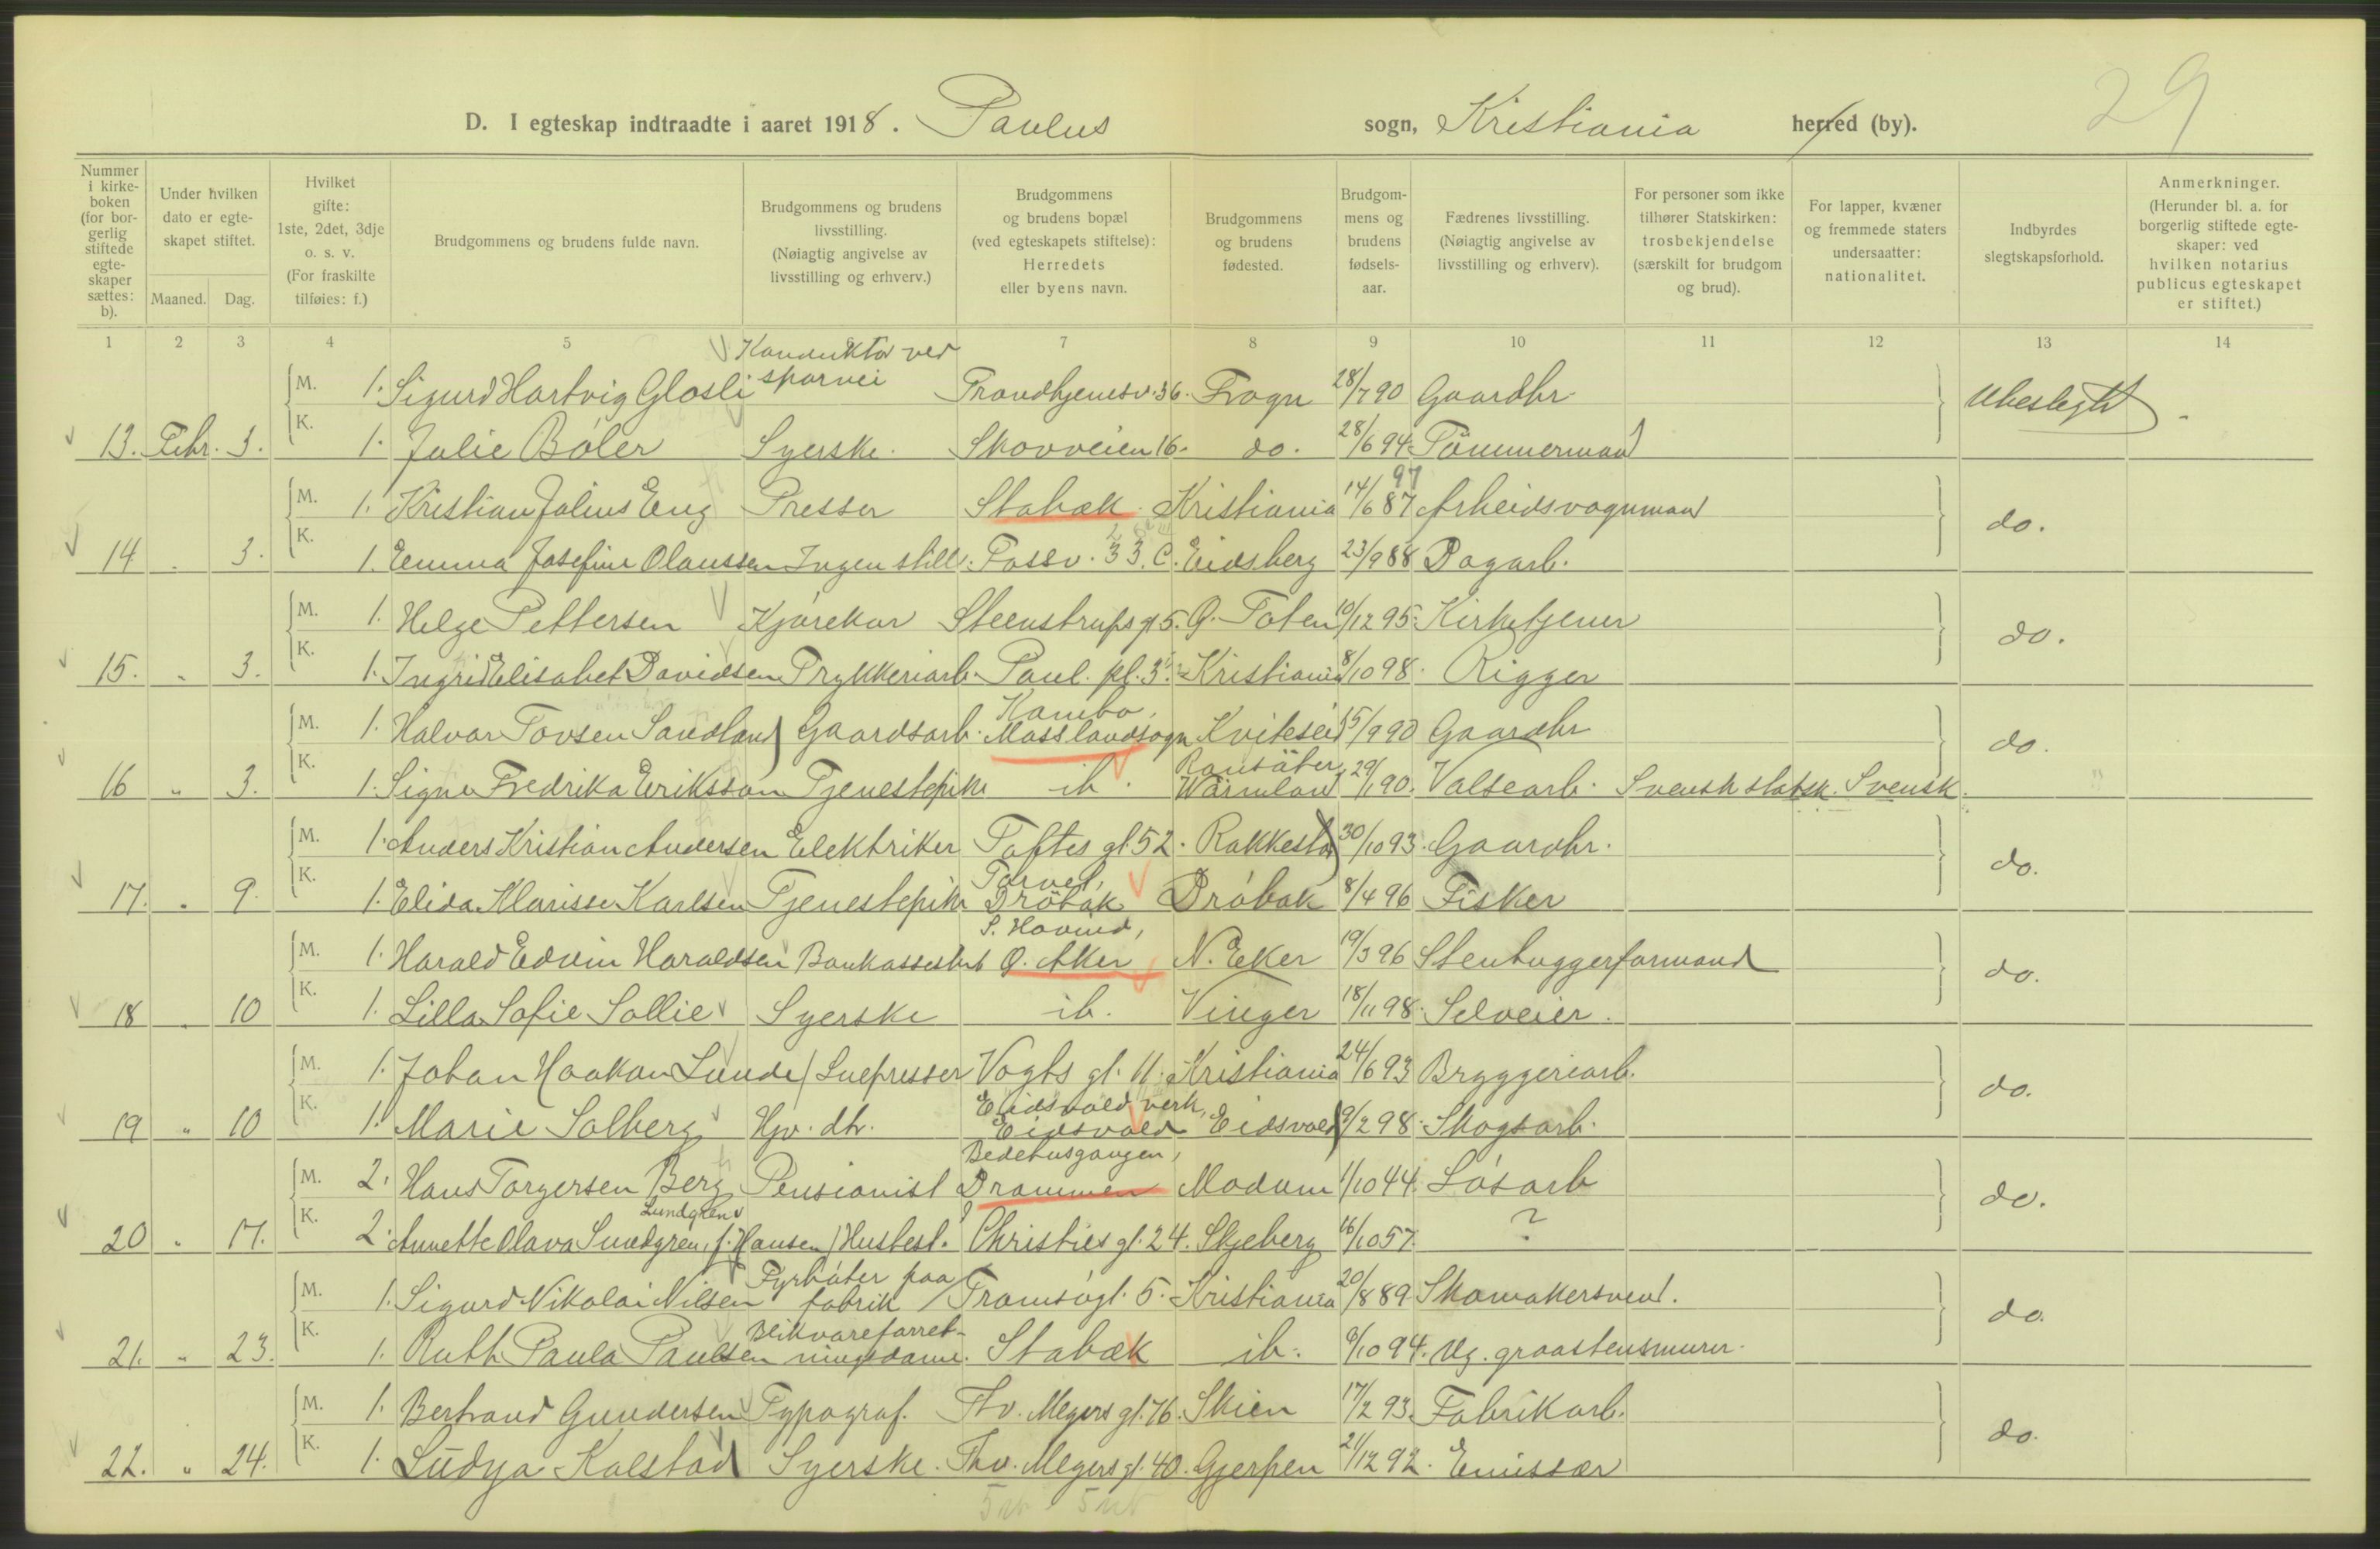 29
D. I egteskap indtraadte i aaret 1918. Paulus sogn, Kristiania herred (by).
Nummer i kirke-boken (for bor-gerlig stiftede egte-skaper sættes: b).
Under hvilken dato er egte-skapet stiftet.
Maaned. Dag.
Hvilket gifte: 1ste, 2det, 3dje o. s. v. (For fraskilte tilføies: f.)
Brudgommens og brudens fulde navn.
Brudgommens og brudens livsstilling. (Nøiagtig angivelse av livsstilling og erhverv.)
Brudgommens og brudens bopæl (ved egteskapets stiftelse): Herredets eller byens navn.
Brudgommens og brudens fødested.
Brudgom-mens og brudens fødsels-aar.
Fædrenes livsstilling. (Nøiagtig angivelse av livsstilling og erhverv).
For personer som ikke tilhører Statskirken: trosbekjendelse (særskilt for brudgom og brud).
For lapper, kvæner og fremmede staters undersaatter: nationalitet.
Indbyrdes slegtskapsforhold.
Anmerkninger. (Herunder bl. a. for borgerlig stiftede egte-skaper: ved hvilken notarius publicus egteskapet er stiftet.)
1 2 3 4 5 6 7 8 9 10 11 12 13 14
Konduktør ved
M. 1. Sigurd Hartvig Glosli sporvei Trondhjemsv. 36. Frogn 28/7 90 Gaardbr. Ubeslegtet
K. 13. Febr. 3. 1. Julie Bøler Syerske. Skovveien 16. do. 28/6 94. Tømmermand
97
M. 1. Kristian Julius Eng Presser Stabæk Kristiania 14/6 87 Arbeidsvognmand do.
K. 14 " 3. 1. Emma Josefine Olaussen Ingen still. Fossv. 33. C. Eidsberg 23/9 88 Dagarb.
M. 1. Helge Pettersen Kjørekar Steenstrups gt 5. Ø. Toten 10/12 95. Kirketjener do.
K. 15. " 3. 1. Ingrid Elisabet Davidsen Trykkeriarb. Paul. pl. 3. Kristiania 8/10 98. Rigger
Kambo,
M. 1. Halvor Tovsen Sandland Gaardsarb. Mosslandsogn Kviteseid 15/9 90 Gaardbr do.
Ransäter,
K. 16 " 3. 1. Signe Fredrika Eriksson Tjenestepike ib. Wärmland 29/1 90. Valsearb. Svensk statsk. Svensk.
M. 1. Anders Kristian Andersen Elektriker Toftes gt. 52. Rakkestad 30/10 93. Gaardbr. do.
Torvet,
K. 17. " 9. 1. Elida Klarisse Karlsen Tjenestepike Drøbak Drøbak 8/4 96 Fisker
S. Hovind,
M. 1. Harald Edvin Haraldsen Bankassistent Ø. Aker N. Eker 19/3 96 Stenhuggerformand do.
K. 18 " 10 1. Lilla Sofie Sollie Syerske ib. Vinger 18/11 98. Selveier.
M. 1. Johan Haakon Lunde Luepresser Vogts gt. 11. Kristiania 24/6 93 Bryggeriarb. do.
Eidsvold verk,
K. 19 " 10 1. Marie Solberg Hjv. dtr. Eidsvold Eidsvold 9/2 98. Skogsarb.
Bedehusgangen,
M. 2. Hans Torgersen Berg Pensionist Drammen Modum 1/10 44. Løsarb do.
Lundgren
K. 20 " 17. 2. Annette Olava Sundgren, f. Hansen Husbest. Christies gt. 24. Skjeberg 16/10 57. ?
Fyrbøter paa
M. 1. Sigurd Nikolai Nilsen fabrik Tromsøgt. 5. Kristiania 20/8 89 Skomakersvend. do.
Blikvareforret-
K. 21. " 23. 1. Ruth Paula Paulsen ningsdame. Stabæk ib. 6/10 94. Ug. graastensmurer.
M. 1. Bertrand Gundersen Typograf. Thv. Meyers gt. 76. Skien 17/2 93. Fabrikarb. do.
K. 22. " 24. 1. Lüdya Kalstad Syerske. Thv. Meyers gt. 40. Gjerpen 21/12 92. Emissær